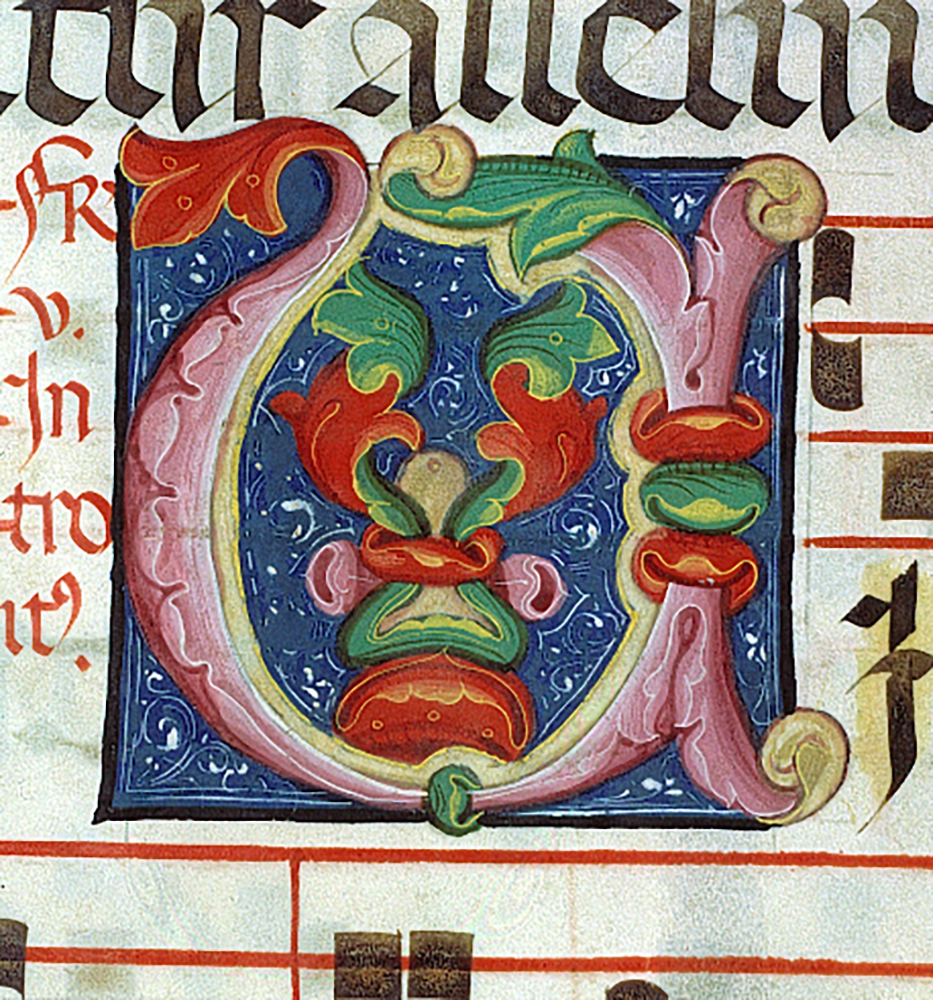 tur allelu
v.
In
tro
it⁹.
U